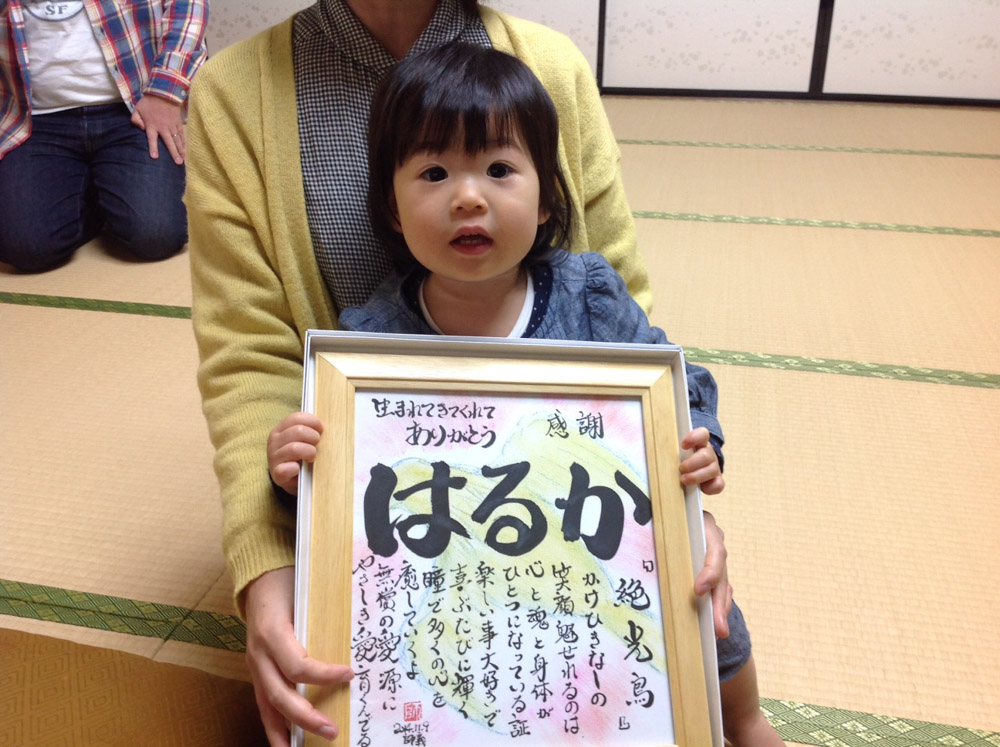 SF
生まれてきてくれて
ありがとう
感謝
はるか
『絶光鳥』
かけひきなしの
笑顔魅せれるのは
心と魂と身体が
ひとつになっている証
楽しい事大好きで
喜ぶたびに輝く
瞳で多くの心を
癒していくよ
無償の愛源に
やさしき愛育くんでる